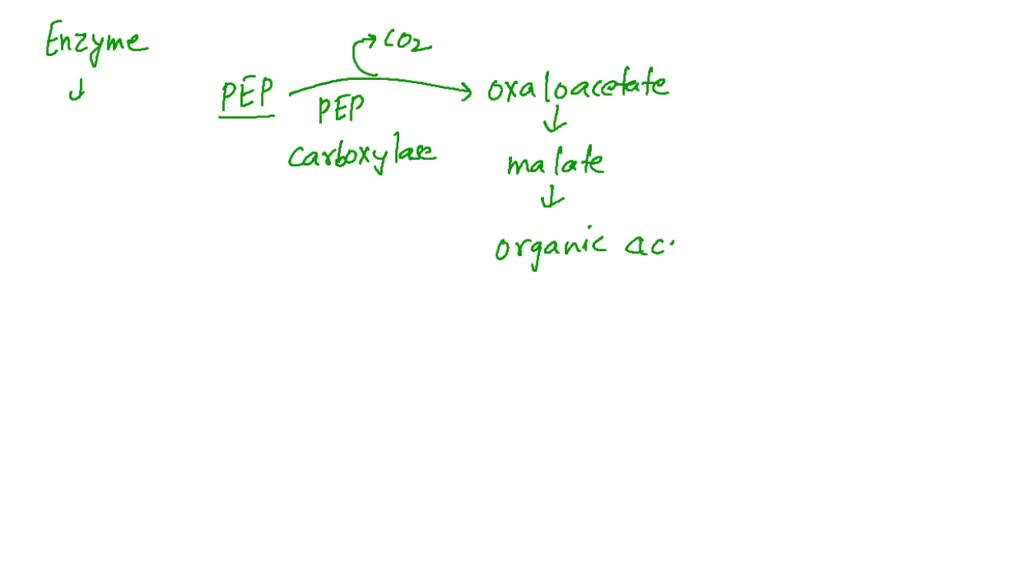 Enzyme
↓
CO2
PEP → oxaloacetate
PEP
carboxylase
↓
malate
↓
organic ac